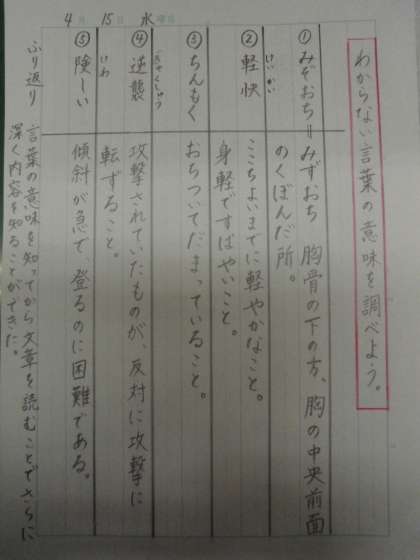 4月 15日 水曜日
わからない言葉の意味を調べよう。
① みぞおち＝みずおち 胸骨の下の方、胸の中央前面
のくぼんだ所。
② 軽快 けいかい ここちよいまでに軽やかなこと。
身軽ですばやいこと。
③ ちんもく おちついてだまっていること。
④ 逆襲 ぎゃくしゅう 攻撃されていたものが、反対に攻撃に
転ずること。
⑤ 険しい けわ 傾斜が急で、登るのに困難である。
ふり返り 言葉の意味を知ってから文章を読むことでさらに
深く内容を知ることができた。